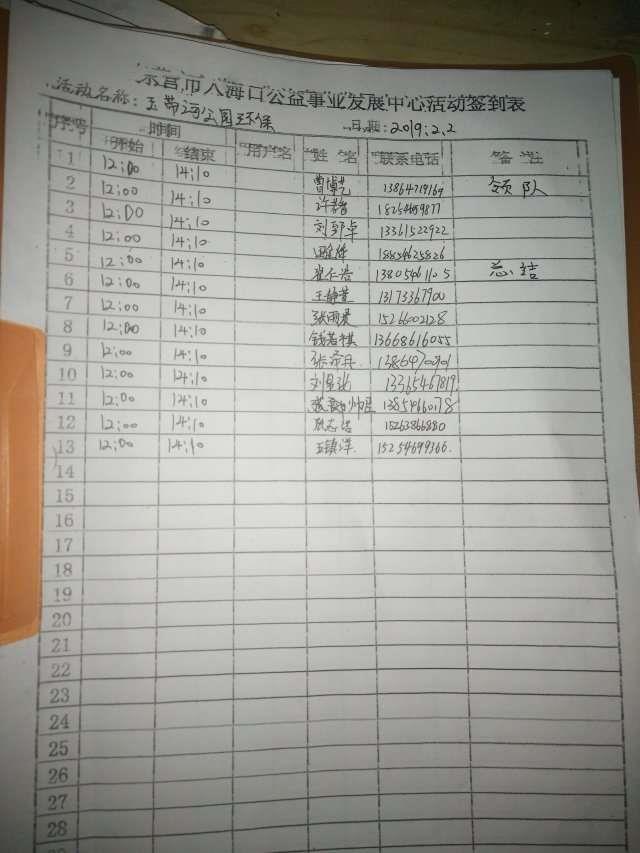 东营市入海口公益事业发展中心活动签到表
活动名称：玉带河公园环保 日期：2019.2.2
序号 时间 用户名 姓名 联系电话 备注
开始 结束
1 12:00 14:10 13864719164 领队
2 12:00 14:10 许若智
3 12:00 14:10 刘郭卓 13361522922
4 12:00 14:10 18854625826
5 12:00 14:10 翟仁浩 13805461105 总结
6 12:00 14:10 王婧萱 13173367900
7 12:00 14:10 15266002128
8 12:00 14:10 钱若祺 13668616055
9 12:00 14:10
10 12:00 14:10 刘星弛 13365467819
11 12:00 14:10 13854660178
12 12:00 14:10 15263866880
13 12:00 14:10 王镇洋 15254699366
14
15
16
17
18
19
20
21
22
23
24
25
26
27
28